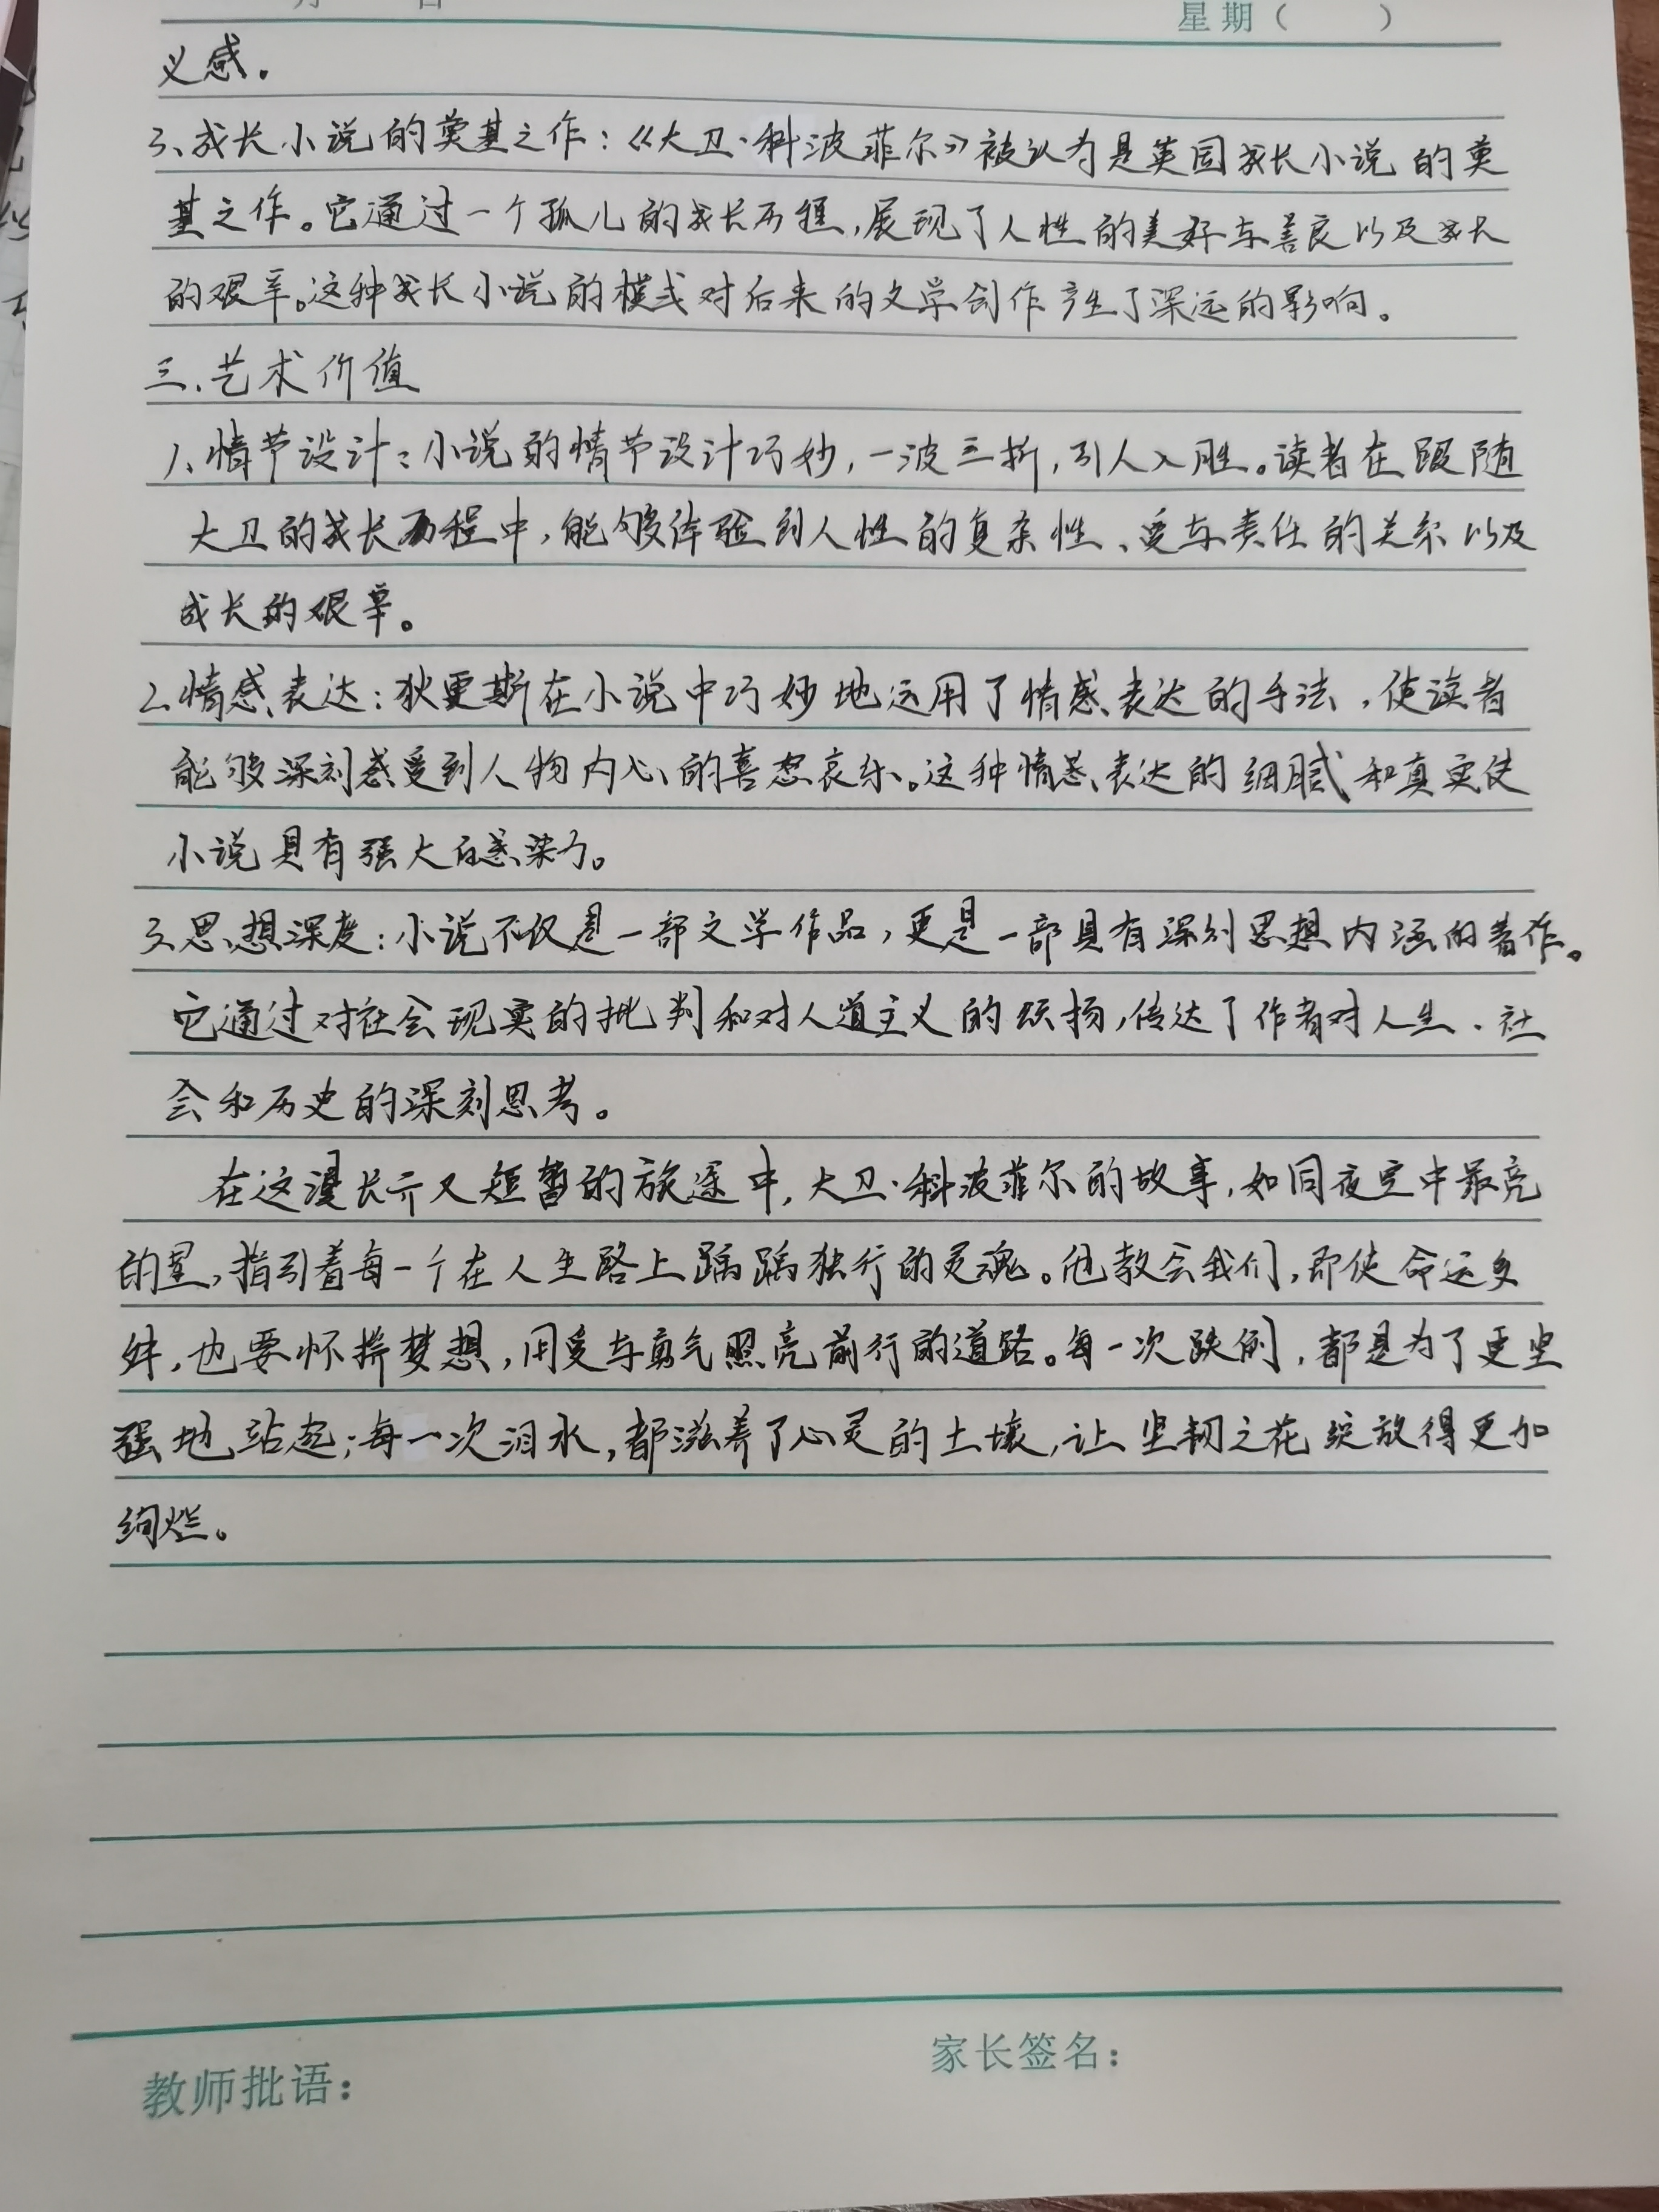 星期（ ）
义感。
3、成长小说的奠基之作：《大卫·科波菲尔》被认为是英国成长小说的奠
基之作。它通过一个孤儿的成长历程，展现了人性的美好与善良以及成长
的艰辛。这种成长小说的模式对后来的文学创作产生了深远的影响。
三、艺术价值
1、情节设计：小说的情节设计巧妙，一波三折，引人入胜。读者在跟随
大卫的成长历程中，能够体验到人性的复杂性、爱与责任的关系以及
成长的艰辛。
2、情感表达：狄更斯在小说中巧妙地运用了情感表达的手法，使读者
能够深刻感受到人物内心的喜怒哀乐。这种情感表达的细腻和真实使
小说具有强大的感染力。
3、思想深度：小说不仅是一部文学作品，更是一部具有深刻思想内涵的著作。
它通过对社会现实的批判和对人道主义的颂扬，传达了作者对人生、社
会和历史的深刻思考。
在这漫长而又短暂的旅途中，大卫·科波菲尔的故事，如同夜空中最亮
的星，指引着每一个在人生路上踽踽独行的灵魂。他教会我们，即使命运多
舛，也要怀揣梦想，用爱与勇气照亮前行的道路。每一次跌倒，都是为了更坚
强地站起；每一次泪水，都滋养了心灵的土壤，让坚韧之花绽放得更加
绚烂。
家长签名：
教师批语：